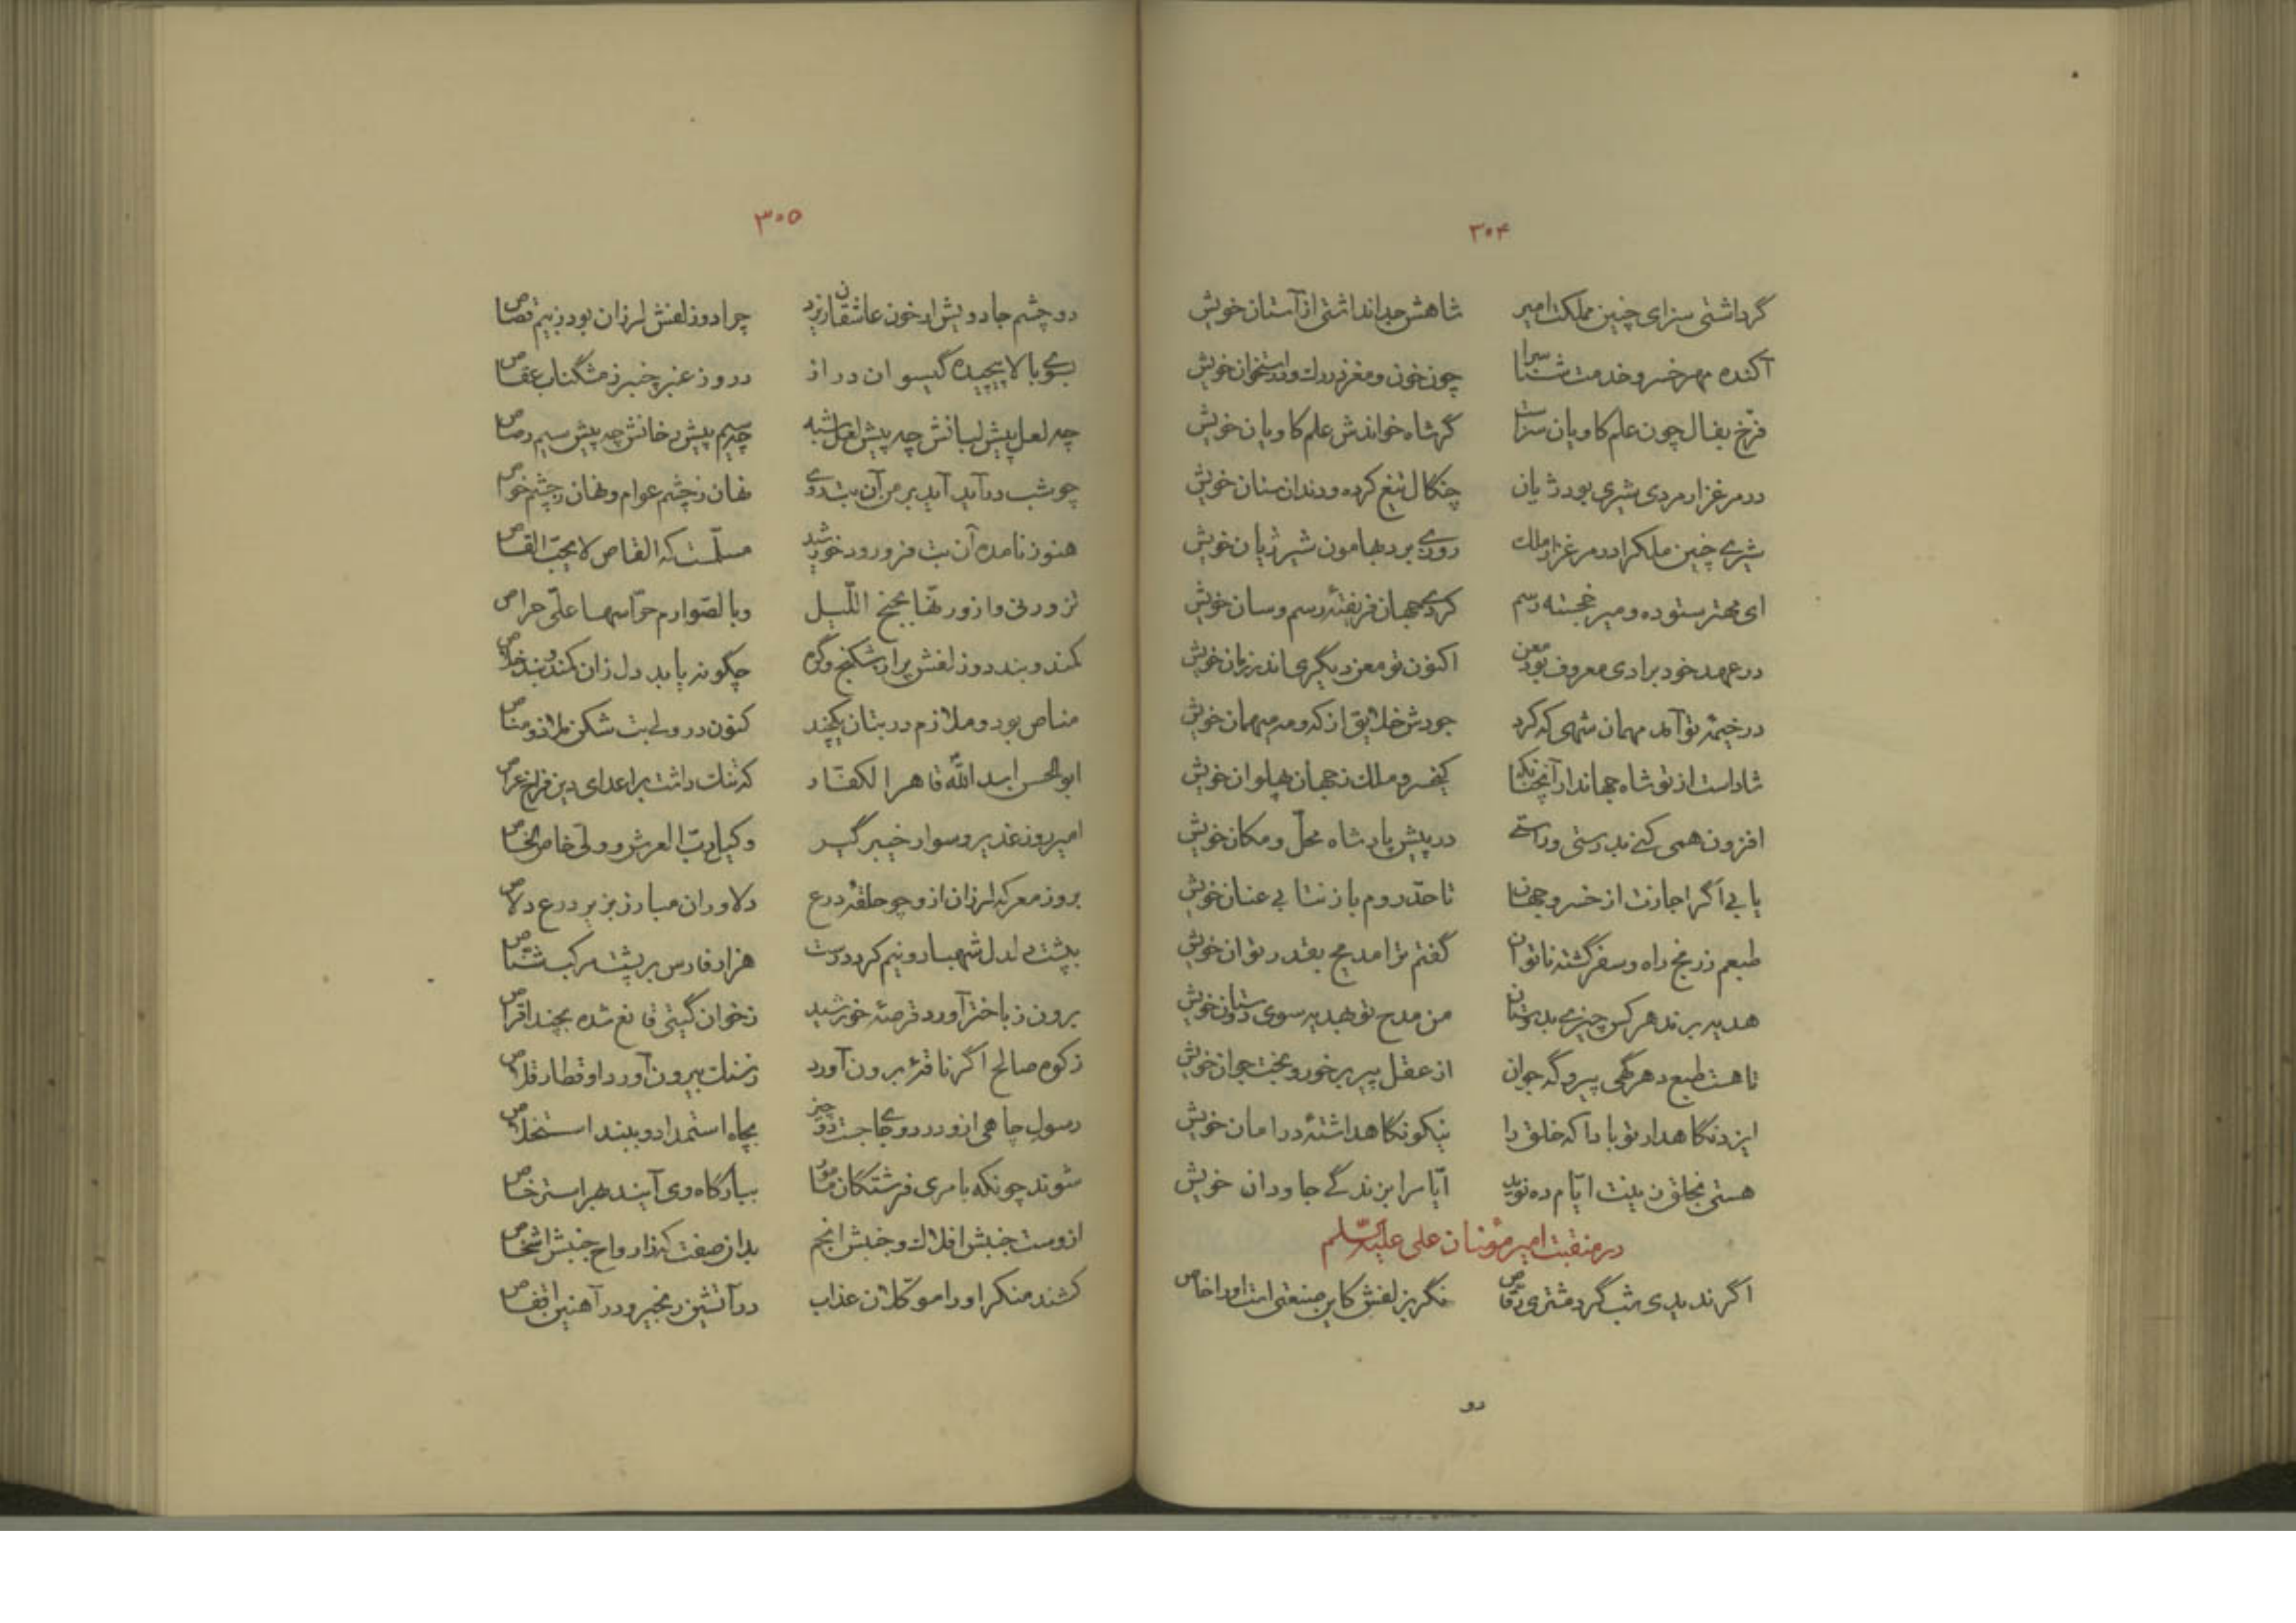 ۳۰۴
گر داشتی سزای چنین مملکت امیر شاهش جدا نداشتی از آستان خویش
آکنده مهر خسرو خدمت سرا چون خون و مغز در رک و در استخوان خویش
فرّخ بفال چون علم کاویان سزاست گر شاه خواندش علم کاویان خویش
در مرغزار مردی شیری بود ژیان چنکال تیغ کرده و دندان سنان خویش
شیری چنین ملکرا در مرغزار ملک روزی برد بهامون شیر ژیان خویش
ای مهتر ستوده و میر خجسته رسم کردی جهان فریفتهٔ رسم و سان خویش
در عهد خود برادی معروف بود معن اکنون تو معن دیگری اندر زمان خویش
در خیمهٔ تو آمد مهمان شهی که کرد جودش خلایق از که و مه میهمان خویش
شاد است از تو شاه جهاندار آنچنانکه کیخسرو ملک ز جهان پهلوان خویش
افزون همی کنی بدرستی و راستی در پیش پادشاه محلّ و مکان خویش
یابی اگر اجازت از خسرو جهان تا حدّ روم باز نتابی عنان خویش
طبعم ز رنج راه و سفر گشته ناتوان گفتم ترا مدیح بقدر توان خویش
هدیه برند هر کس چیزی بدوستان من مدح تو هدیه سوی دوستان خویش
تا هست طبع دهر گهی پیر و گه جوان از عقل پیر برخور و بخت جوان خویش
ایزد نکاهدار تو بادا که خلق را نیکو نکاهداشتهٔ در امان خویش
هستی بخلق زینت ایّام ده نوید ایّام را بزندگی جاودان خویش
در منقبت امیر مؤمنان علی علیه السّلم
اگر ندیدی شب گرد مشتری رقّاص نگر بزلفش کاین صنعتی است او را خاص
دو
۳۰۵
دو چشم جادویش ار خون عاشقان ریزد چرا دو زلفش لرزان بود ز بیم قصاص
بسوی بالا پیچیده گیسوان دراز درو ز عنبر چنبر ز مشگناب عقاص
چه لعل پیش لبانش چه پیش لعل شبه چه سیم پیش رخانش چه پیش سیم رصاص
چو شب درآید آید بر من آن بت روی نهان ز چشم عوام و نهان ز چشم خواص
هنوز نامده آن بت فرو رود خورشید مسلّمست که القاص لا یحبّ القاص
تزورنی و ازورنّها بجنح اللّیل وبالصّوارم حرّاسها علیّ حراص
کمند و بند دو زلفش پر از شکنج و گره چگونه یابد دل زان کمند و بند خلاص
مناص بود و ملازم در بتان یکچند کنون در ولی بت شکن ملاذ و مناص
ابوالحسن اسد اللّه قاهر الکفّار که تنک داشت بر اعدای دین فراخ عراص
امیر روز غدیر و سوار خیبر گیر وکیل ربّ العرش و ولّی خاص الخاص
بروز معرکه لرزان ازو چو حلقهٔ درع دلاوران مبارز بزیر درع دلاص
بپشت دلدل شهبا دو نیم کرد درست هزار فارس بر پشت مرکب شمّاص
برون ز باختر آورد قرصهٔ خورشید ز خوان گیتی قانع شده بچند اقراص
ز کوه صالح اگر ناقهٔ برون آورد ز سنک بیرون آورد او قطار قلاص
رسول جاهی ازو در دو جا جست دو چیز بجاه استمداد و ببند استخلاص
شوند چونکه بامری فرشتکان مامور ببارگاه وی آیند بهر استرخاص
ازوست جنبش افلاک و جنبش انجم بدان صفت که ز ارواح جنبش اشخاص
کشند منکر او را موکّلان عذاب در آتشین زنجیر و در آهنین اقفاص